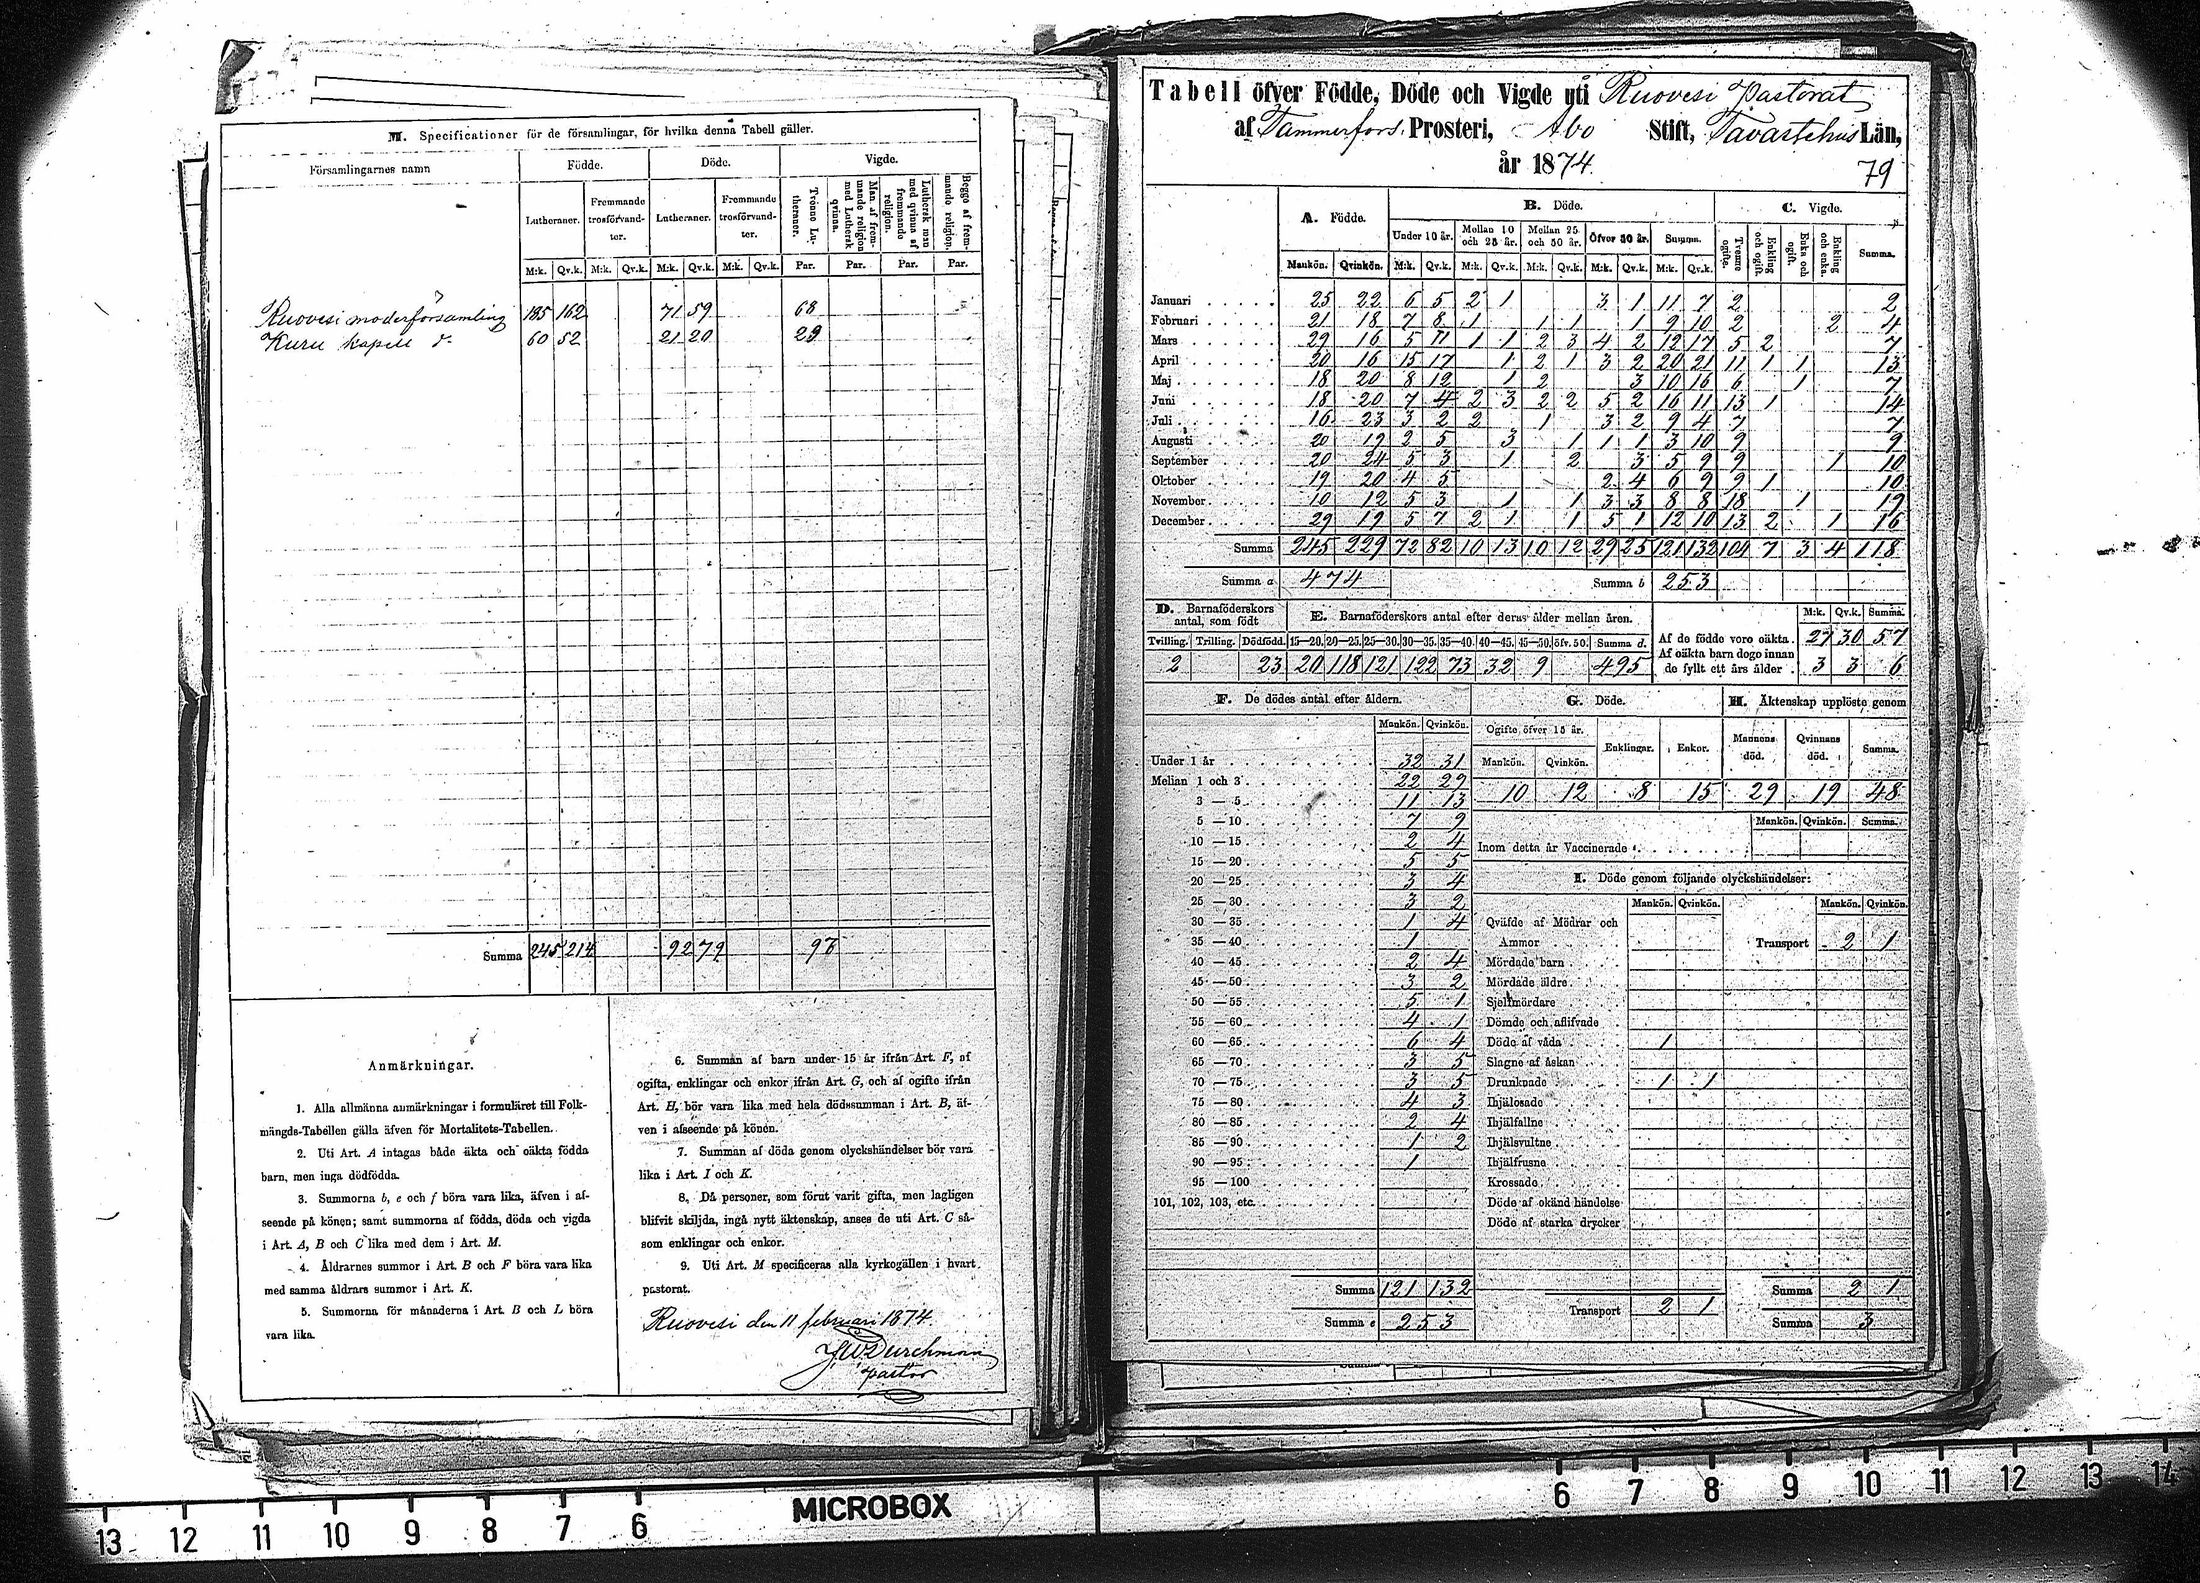 M. Specificationer för de församlingar, för hvilka denna Tabell gäller.
Församlingarnes namn
Födde. Döde. Vigde.
Lutheraner. Fremmande trosförvandter. Lutheraner. Fremmande trosförvandter. Tvenne Lutheraner. Man af fremmande religion med Luthersk qvinna. Luthersk man med qvinna af fremmande religion. Begge af fremmande religion.
M:k. Qv.k. M:k. Qv.k. M:k. Qv.k. M:k. Qv.k. Par. Par. Par. Par.
Ruovesi moderförsamling 185 162 71 59 68
Kuru kapell d:o 60 52 21 20 29
Summa 245 214 92 79 97
Anmärkningar.
1. Alla allmänna anmärkningar i formuläret till Folk-
mängds-Tabellen gälla äfven för Mortalitets-Tabellen.
2. Uti Art. A intagas både äkta och oäkta födda
barn, men inga dödfödda.
3. Summorna b, e och f böra vara lika, äfven i af-
seende på könen; samt summorna af födda, döda och vigda
i Art. A, B och C lika med dem i Art. M.
4. Åldrarnes summor i Art. B och F böra vara lika
med samma åldrars summor i Art. K.
5. Summorna för månaderna i Art. B och L böra
vara lika.
6. Summan af barn under 15 år ifrån Art. F, af
ogifta, enklingar och enkor ifrån Art. G, och af gifte ifrån
Art. H, bör vara lika med hela dödssumman i Art. B, äf-
ven i afseende på könen.
7. Summan af döda genom olyckshändelser bör vara
lika i Art. I och K.
8. Då personer, som förut varit gifta, men lagligen
blifvit skiljda, ingå nytt äktenskap, anses de uti Art. C så-
som enklingar och enkor.
9. Uti Art. M specificeras alla kyrkogällen i hvart
pastorat.
Ruovesi den 11 februari 1874.
J W Durchman
pastor
Tabell öfver Födde, Döde och Vigde uti Ruovesi Pastorat
af Tammerfors Prosteri, Åbo Stift, Tavastehus Län,
år 1874.
79
A. Födde. B. Döde. C. Vigde.
Under 10 år. Mellan 10 och 25 år. Mellan 25 och 50 år. Öfver 50 år. Summa. Tvenne ogifte. Enkling och ogift. Enka och ogift. Enkling och enka. Summa.
Mankön. Qvinkön. M:k. Qv.k. M:k. Qv.k. M:k. Qv.k. M:k. Qv.k. M:k. Qv.k.
Januari 25 22 6 5 2 1 3 1 11 7 2 2
Februari 21 18 7 8 1 1 1 1 9 10 2 2 4
Mars 29 16 5 11 1 1 2 3 4 2 12 17 5 2 7
April 20 16 15 17 1 2 1 3 2 20 21 11 1 1 13
Maj 18 20 8 12 1 2 3 10 16 6 1 7
Juni 18 20 7 4 2 3 2 2 5 2 16 11 13 1 14
Juli 16 23 3 2 2 1 3 2 9 4 7 7
Augusti 20 19 2 5 3 1 1 1 3 10 9 9
September 20 24 5 3 1 2 3 5 9 9 1 10
Oktober 19 20 4 5 2 4 6 9 9 1 10
November 10 12 5 3 1 1 3 3 8 8 18 1 19
December 29 19 5 7 2 1 1 5 1 12 10 13 2 1 16
Summa 245 229 72 82 10 13 10 12 29 25 121 132 104 7 3 4 118
Summa a 474 Summa b 253
D. Barnaföderskors antal, som födt
Tvilling. Trilling. Dödfödd.
2 23
E. Barnaföderskors antal efter deras ålder mellan åren.
15—20. 20—25. 25—30. 30—35. 35—40. 40—45. 45—50. öfv. 50. Summa d.
20 118 121 122 73 32 9 495
M:k. Qv.k. Summa.
Af de födde voro oäkta 27 30 57
Af oäkta barn dogo innan
de fyllt ett års ålder 3 3 6
F. De dödes antal efter åldern.
Mankön. Qvinkön.
Under 1 år 32 31
Mellan 1 och 3 22 29
3 — 5 11 13
5 — 10 7 9
10 — 15 2 4
15 — 20 5 5
20 — 25 3 4
25 — 30 3 2
30 — 35 1 4
35 — 40 1
40 — 45 2 4
45 — 50 3 2
50 — 55 5 1
55 — 60 4 1
60 — 65 6 4
65 — 70 3 5
70 — 75 3 5
75 — 80 4 3
80 — 85 2 4
85 — 90 1 2
90 — 95 1
95 — 100
101, 102, 103, etc.
Summa 121 132
Summa e 253
G. Döde.
Ogifte öfver 15 år. Enklingar. Enkor.
Mankön. Qvinkön.
10 12 8 15
H. Äktenskap upplöste genom
Mannens död. Qvinnans död. Summa.
29 19 48
Mankön. Qvinkön. Summa.
Inom detta år Vaccinerade
I. Döde genom följande olyckshändelser:
Mankön. Qvinkön. Mankön. Qvinkön.
Qväfde af Mödrar och
Ammor
Transport 2 1
Mördade barn
Mördade äldre
Sjelfmördare
Dömde och aflifvade
Döde af våda 1
Slagne af åskan
Drunknade 1 1
Ihjälosade
Ihjälfallne
Ihjälsvultne
Ihjälfrusne
Krossade
Döde af okänd händelse
Döde af starka drycker
Transport 2 1
Summa 2 1
Summa 3
13 12 11 10 9 8 7 6 MICROBOX 6 7 8 9 10 11 12 13 14